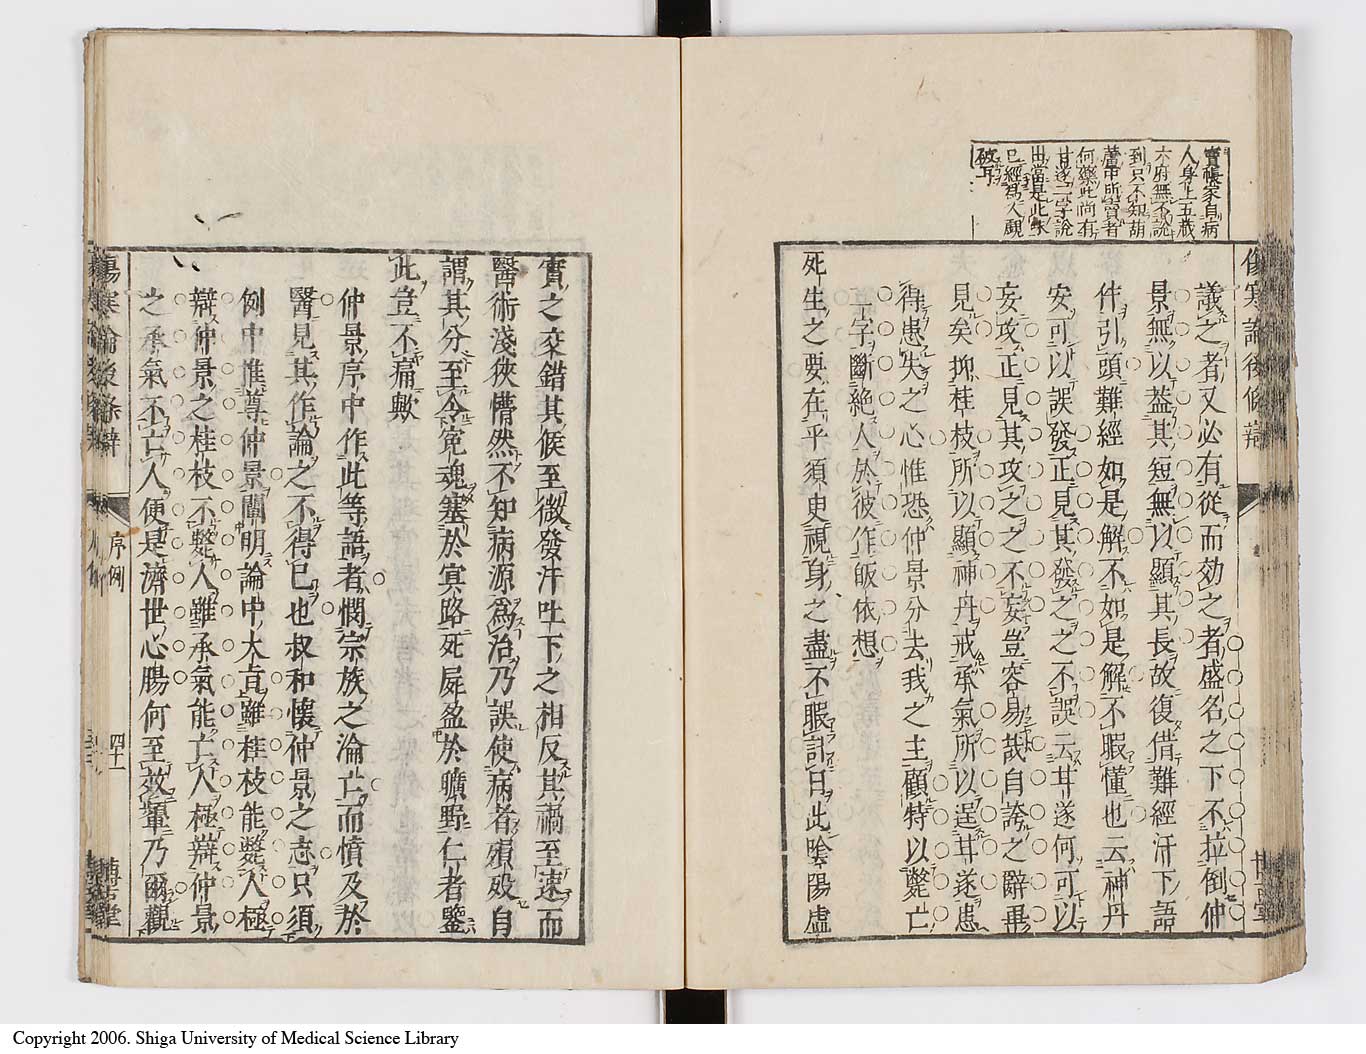 實帳家自病
人身上五藏
六府無不說
到只不知葫
蘆中所賣者
何藥此尚有
甘遂二字說
出當是此味
已經爲人覷
破耳
傷寒論後條辯
博古堂
議之者又必有從而効之者盛名之下不拉倒仲
景無以蓋其短無以顯其長故復借難經汗下語
件引頭難經如是解不如是解不暇懂也云神丹
安可以誤發正見其發之之不誤云甘遂何可以
妄攻正見其攻之之不妄豈容易哉自誇之辭再
見矣抑桂枝所以顯神丹戒承氣所以逞甘遂患
得患失之心惟恐仲景分去我之主顧特以斃亡
二字斷絕人於彼作皈依想
死生之要在乎須臾視身之盡不暇計日此陰陽虛
實之交錯其候至微發汗吐下之相反其禍至速而
醫術淺狹懵然不知病源爲治乃誤使病者殞歿自
謂其分至令寃魂塞於冥路死屍盈於曠野仁者鑒
此豈不痛歟
仲景序中作此等語者憫宗族之淪亡而憤及於
醫見其作論之不得已也叔和懷仲景之志只須
例中惟尊仲景闡明論中大旨雖桂枝能斃人極
辯仲景之桂枝不斃人雖承氣能亡人極辯仲景
之承氣不亡人便是濟世心腸何至效顰乃爾觀
傷寒論後條辯
序例
四十一
博古堂